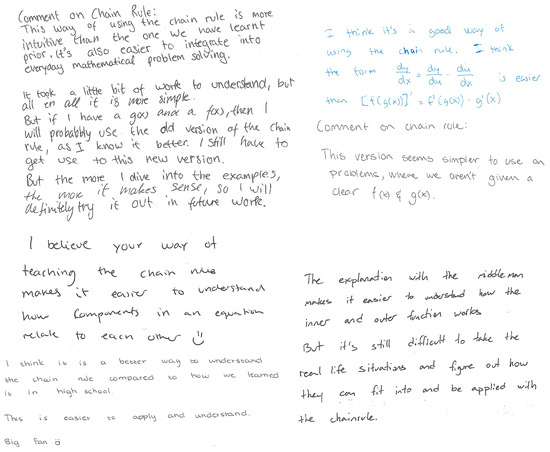 Comment on Chain Rule:
This way of using the chain rule is more
intuitive than the one we have learnt
prior. It's also easier to integrate into
everyday mathematical problem solving.
It took a little bit of work to understand, but
all in all it is more simple.
But if I have a g(x) and a f(x), then I
will probablly use the old version of the chain
rule, as I know it better. I still have to
get use to this new version.
But the more I dive into the examples,
the more it makes sense, so I will
definitely try it out in future work.
I think it's a good way of
using the chain rule. I think
the form dy/dx = dy/du · du/dx is easier
then [f(g(x))]' = f'(g(x)) · g'(x)
Comment on chain rule:
This version seems simpler to use on
problems, where we aren't given a
clear f(x) & g(x).
I believe your way of
teaching the chain rule
makes it easier to understand
how components in an equation
relate to each other ☺
I think it is a better way to understand
the chain rule compared to how we learned
it in high school.
This is easier to apply and understand.
Big Fan ☺
The explanation with the middleman
makes it easier to understand how the
inner and outer function works
But it's still difficult to take the
real life situations and figure out how
they can fit into and be applied with
the chainrule.